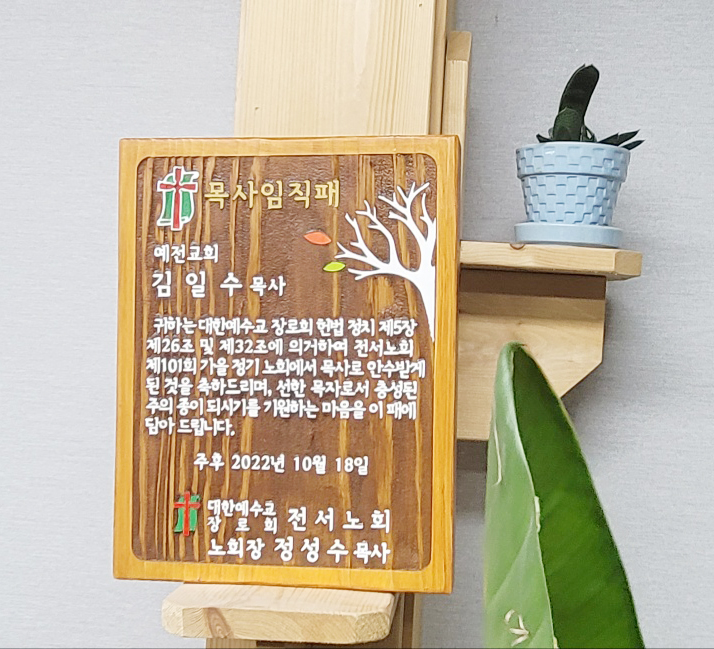 목사임직패
예전교회
김 일 수 목사
귀하는 대한예수교 장로회 헌법 정치 제5장
제26조 및 제32조에 의거하여 전서노회
제101회 가을 정기 노회에서 목사로 안수받게
된 것을 축하드리며, 선한 목자로서 충성된
주의 종이 되시기를 기원하는 마음을 이 패에
담아 드립니다.
주후 2022년 10월 18일
대한예수교
장 로 회 전 서 노 회
노회장 정 성 수 목사